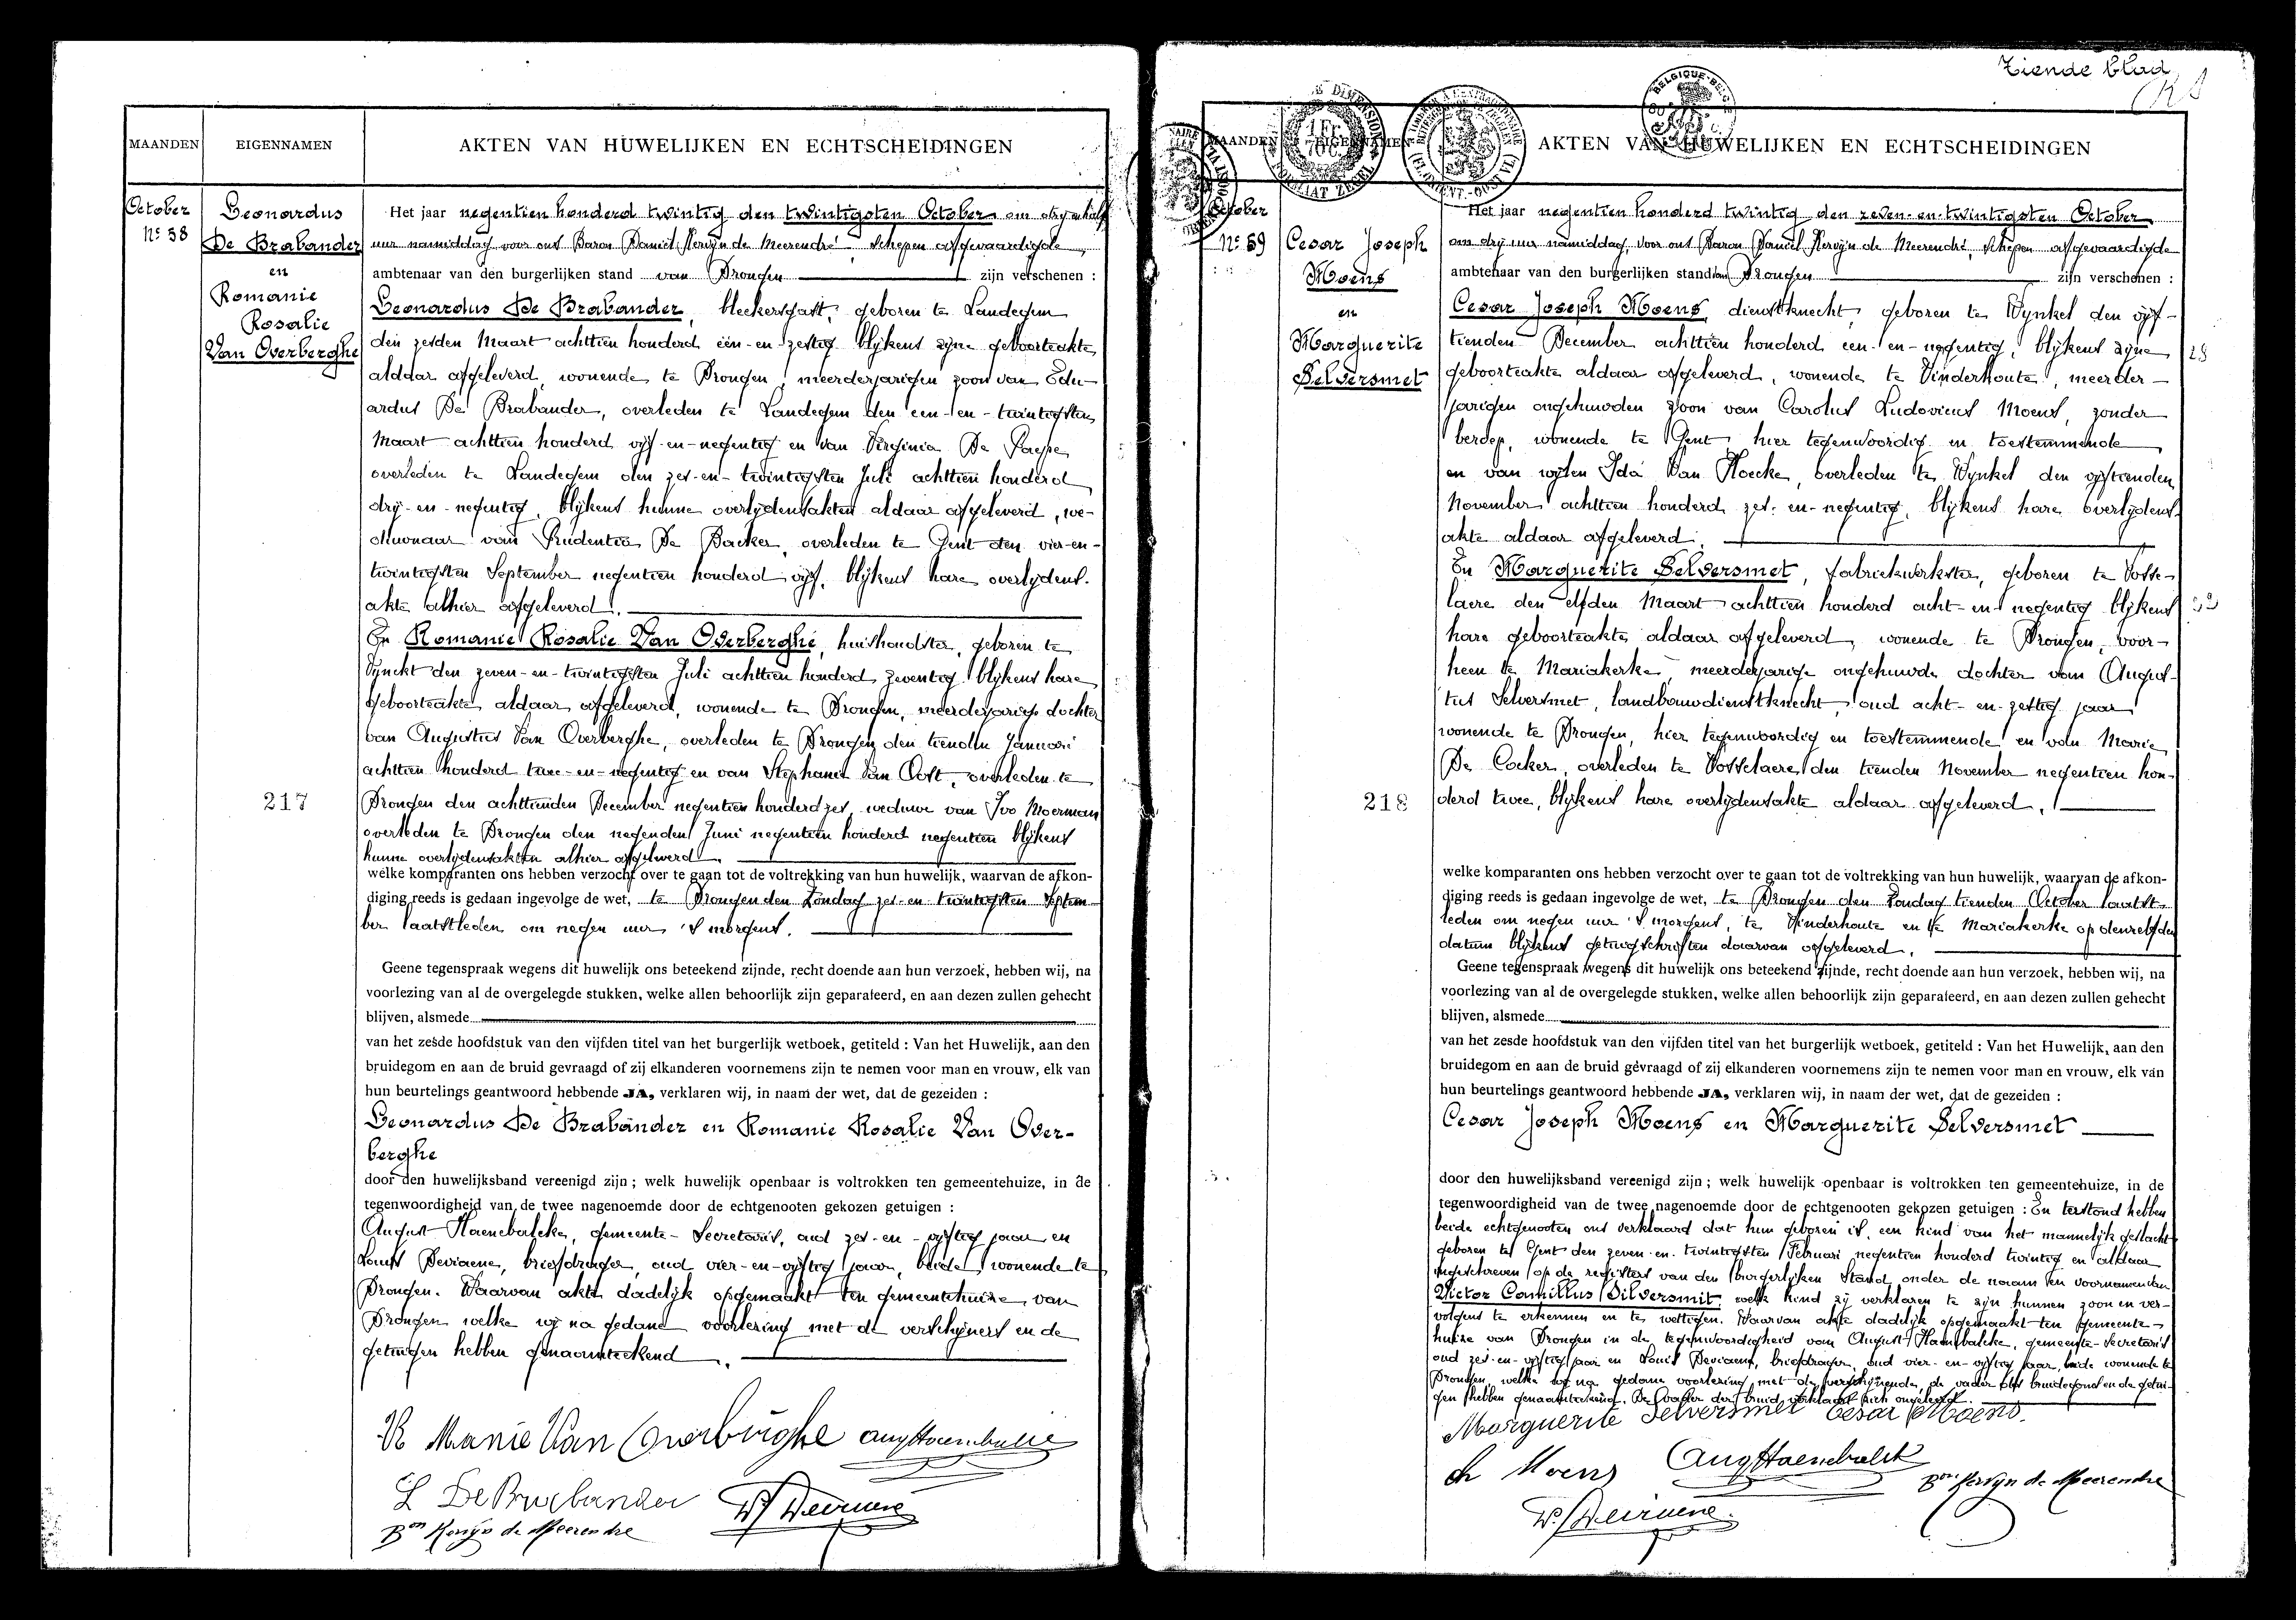 MAANDEN
EIGENNAMEN
AKTEN VAN HUWELIJKEN EN ECHTSCHEIDINGEN
October
No 58
Leonardus
De Brabander
en
Romanie
Rosalie
Van Overberghe
217
Het jaar negentien honderd twintig den twintigsten October om dry en half
uur namiddag voor ons Baron Daniel Kervyn de Meerendré Schepen afgevaardigde
ambtenaar van den burgerlijken stand van Drongen zijn verschenen :
Leonardus De Brabander, bleekersgast, geboren te Landegem
den zesden Maart achttien honderd een-en-zestig blijkens zijne geboorteakte
aldaar afgeleverd, wonende te Drongen, meerderjarigen zoon van Edu-
ardus De Brabander, overleden te Landegem den een-en-twintigsten
Maart achttien honderd vijf-en-negentig en van Virginia De Paepe
overleden te Landegem den zes-en-twintigsten Juli achttien honderd
dry-en-negentig, blijkens hunne overlydensakten aldaar afgeleverd, we-
duwnaar van Prudentia De Backer, overleden te Gent den vier-en-
twintigsten September negentien honderd vijf, blijkens hare overlydens-
akte alhier afgeleverd.
En Romanie Rosalie Van Overberghe, huishoudster, geboren te
Vynckt den zeven-en-twintigsten Juli achttien honderd zeventig blijkens hare
geboorteakte aldaar afgeleverd, wonende te Drongen, meerderjarige dochter
van Augustus Van Overberghe, overleden te Drongen den tienden Januari
achttien honderd twee-en-negentig en van Stephanie Van Oost, overleden te
Drongen den achttienden December negentien honderd zes, weduwe van Ivo Moerman
overleden te Drongen den negenden Juni negentien honderd negentien blijkens
hunne overlydensakten alhier afgeleverd.
welke komparanten ons hebben verzocht over te gaan tot de voltrekking van hun huwelijk, waarvan de afkon-
diging reeds is gedaan ingevolge de wet, te Drongen den Zondag zes-en twintigsten Septem-
ber laatstleden om negen uur 's morgens.
Geene tegenspraak wegens dit huwelijk ons beteekend zijnde, recht doende aan hun verzoek, hebben wij, na
voorlezing van al de overgelegde stukken, welke allen behoorlijk zijn geparafeerd, en aan dezen zullen gehecht
blijven, alsmede
van het zesde hoofdstuk van den vijfden titel van het burgerlijk wetboek, getiteld : Van het Huwelijk, aan den
bruidegom en aan de bruid gevraagd of zij elkanderen voornemens zijn te nemen voor man en vrouw, elk van
hun beurtelings geantwoord hebbende JA, verklaren wij, in naam der wet, dat de gezeiden :
Leonardus De Brabander en Romanie Rosalie Van Over-
berghe
door den huwelijksband vereenigd zijn ; welk huwelijk openbaar is voltrokken ten gemeentehuize, in de
tegenwoordigheid van de twee nagenoemde door de echtgenooten gekozen getuigen :
August Haenebalcke, gemeente-Secretaris, oud zes-en-vijftig jaar en
Louis Deviaene, briefdrager, oud vier-en-vijftig jaar, beide wonende te
Drongen. Waarvan akte dadelijk opgemaakt ten gemeentehuize van
Drongen welke wij na gedane voorlezing met de verschijners en de
getuigen hebben genaamteekend.
R Manie Van Overberghe Aug Haenebalcke
L De Brabander
Bon Kervyn de Meerendre
Ziende blad
MAANDEN
EIGENNAMEN
AKTEN VAN HUWELIJKEN EN ECHTSCHEIDINGEN
BELGIQUE-BELG
1 Fr.
October
No 59
Cesar Joseph
Moens
en
Marguerite
Selversmet
218
Het jaar negentien honderd twintig den zeven-en-twintigsten October
om dry uur namiddag, voor ons Baron Daniel Kervyn de Meerendré, Schepen afgevaardigde
ambtenaar van den burgerlijken stand van Drongen zijn verschenen :
Cesar Joseph Moens, dienstknecht, geboren te Wynkel den vijf-
tienden December achttien honderd een-en-negentig, blijkens zijne
geboorteakte aldaar afgeleverd, wonende te Vinderhoute, meerder-
jarigen ongehuwden zoon van Carolus Ludovicus Moens, zonder
beroep, wonende te Gent, hier tegenwoordig en toestemmende
en van wijlen Ida Van Hoecke, overleden te Wynkel den vijftienden
November achttien honderd zes-en-negentig, blijkens hare overlydens-
akte aldaar afgeleverd.
En Marguerite Selversmet, fabriekwerkster, geboren te Vosse-
laere den elfden Maart achttien honderd acht-en negentig blijkens
hare geboorteakte aldaar afgeleverd, wonende te Drongen, voor-
heen te Mariakerke, meerderjarige ongehuwde dochter van Augus-
tus Selversmet, landbouwdienstknecht, oud acht-en-zestig jaar
wonende te Drongen, hier tegenwoordig en toestemmende en van Marie
De Cocker, overleden te Vosselaere den tienden November negentien hon-
derd twee, blijkens hare overlydensakte aldaar afgeleverd.
welke komparanten ons hebben verzocht over te gaan tot de voltrekking van hun huwelijk, waarvan de afkon-
diging reeds is gedaan ingevolge de wet, te Drongen den Zondag tienden October laatst-
leden om negen uur 's morgens, te Vinderhoute en te Mariakerke op denzelfden
datum blijkens getuigschriften daarvan afgeleverd.
Geene tegenspraak wegens dit huwelijk ons beteekend zijnde, recht doende aan hun verzoek, hebben wij, na
voorlezing van al de overgelegde stukken, welke allen behoorlijk zijn geparafeerd, en aan dezen zullen gehecht
blijven, alsmede
van het zesde hoofdstuk van den vijfden titel van het burgerlijk wetboek, getiteld : Van het Huwelijk, aan den
bruidegom en aan de bruid gevraagd of zij elkanderen voornemens zijn te nemen voor man en vrouw, elk van
hun beurtelings geantwoord hebbende JA, verklaren wij, in naam der wet, dat de gezeiden :
Cesar Joseph Moens en Marguerite Selversmet
door den huwelijksband vereenigd zijn ; welk huwelijk openbaar is voltrokken ten gemeentehuize, in de
tegenwoordigheid van de twee nagenoemde door de echtgenooten gekozen getuigen : En terstond hebben
beide echtgenooten ons verklaard dat hun geboren is, een kind van het mannelijk geslacht
geboren te Gent den zeven-en-twintigsten Februari negentien honderd twintig en aldaar
ingeschreven op de registers van den burgerlyken Stand onder de naam en voornamen van
Victor Camillus Silversmit welk kind zij verklaren te zijn hunnen zoon en ver-
volgens te erkennen en te wettigen. Waarvan akte dadelijk opgemaakt ten gemeente-
huize van Drongen in de tegenwoordigheid van August Haenebalcke, gemeente-Secretaris
oud zes-en-vijftig jaar en Louis Deviaene, briefdrager, oud vier-en-vijftig jaar, beide wonende te
Drongen, welke wij na gedane voorlezing met de verschijnende, de vader des bruidegoms en de getui-
gen hebben genaamteekend. De vader der bruid verklaart zich ongeleerd.
Marguerite Selversmet Cesar Moens.
Ch Moens Aug Haenebalck
Bon Kervyn de Meerendre